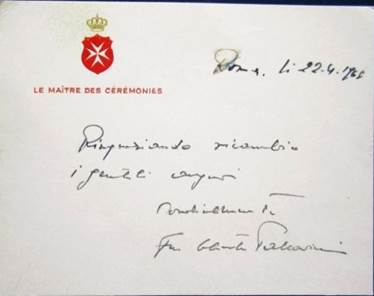 Roma, li 22.4.196
LE MAÎTRE DES CÉRÉMONIES
Ringraziando ricambio
i gentili auguri
cordialmente
Fra